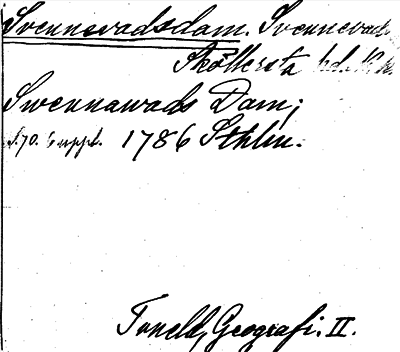 Svennevadsdam. Svennevads
Sköllersta hd. N. l.
Swennawads Dam;
s. 70. Suppl. 1786 Sthlm.
Tuneld, Geografi. II.